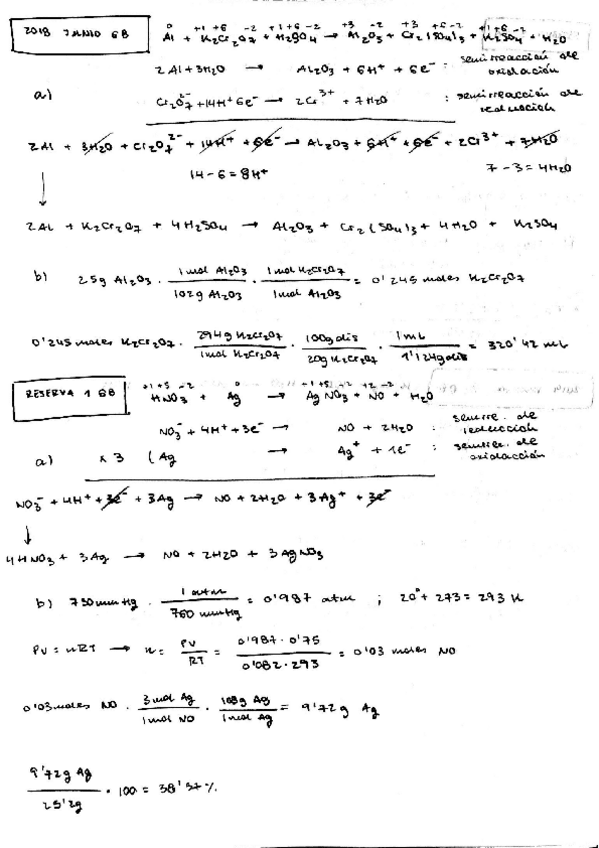 2018 JUNIO 6B
0 +1 +6 -2 +1 +6 -2 +3 -2 +3 +6 -2 +1 +6 -2
Al + K2Cr2O7 + H2SO4 → Al2O3 + Cr2(SO4)3 + K2SO4 + H2O
2Al + 3H2O → Al2O3 + 6H+ + 6e- : semirreacción de oxidación
a) Cr2O7^2- + 14H+ 6e- → 2Cr^3+ + 7H2O : semirreacción de reducción
2Al + 3H2O + Cr2O7^2- + 14H+ + 6e- → Al2O3 + 6H+ + 6e- + 2Cr^3+ + 7H2O
14 - 6 = 8H+ 7 - 3 = 4H2O
↓
2Al + K2Cr2O7 + 4H2SO4 → Al2O3 + Cr2(SO4)3 + 4H2O + K2SO4
b) 25g Al2O3 · 1 mol Al2O3 / 102g Al2O3 · 1 mol K2Cr2O7 / 1 mol Al2O3 = 0'245 moles K2Cr2O7
0'245 moles K2Cr2O7 · 294g K2Cr2O7 / 1 mol K2Cr2O7 · 100g dis / 20g K2Cr2O7 · 1mL / 1'124g dis = 320'42 mL
RESERVA 1 6B
+1 +5 -2 0 +1 +5 -2 +2 -2
HNO3 + Ag → AgNO3 + NO + H2O
NO3- + 4H+ + 3e- → NO + 2H2O : semirre. de reducción
a) x 3 (Ag → Ag+ + 1e- : semirre. de oxidación
NO3- + 4H+ + 3e- + 3Ag → NO + 2H2O + 3Ag+ + 3e-
↓
4HNO3 + 3Ag → NO + 2H2O + 3AgNO3
b) 750 mmHg · 1 atm / 760 mmHg = 0'987 atm ; 20° + 273 = 293 K
PV = nRT → n = PV / RT = 0'987 · 0'75 / 0'082 · 293 = 0'03 moles NO
0'03 moles NO · 3 mol Ag / 1 mol NO · 108g Ag / 1 mol Ag = 9'72g Ag
9'72g Ag / 25'2g · 100 = 38'57%